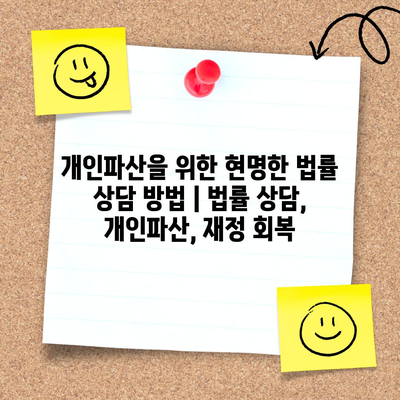 개인파산을 위한 현명한 법률
상담 방법 | 법률 상담,
개인파산, 재정 회복